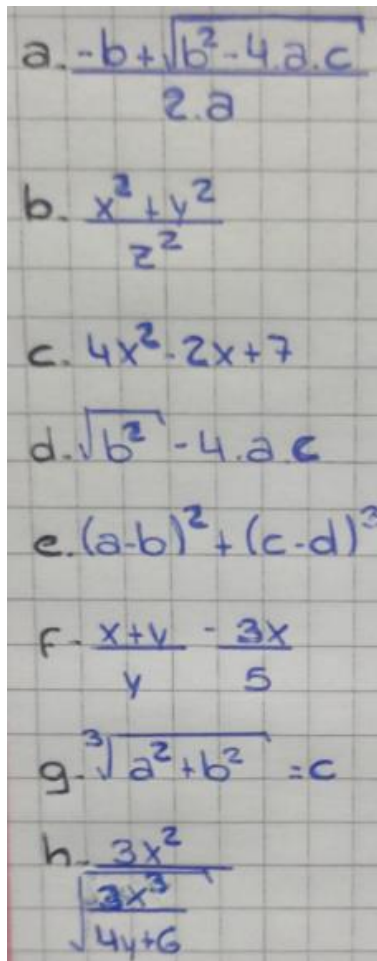 a. (-b+√(b²-4.a.c))/(2.a)
b. (x²+y²)/z²
c. 4x²-2x+7
d. √(b²)-4.a.c
e. (a-b)²+(c-d)³
f- (x+y)/y - 3x/5
g- ³√(a²+b²) =c
h- 3x²/√(3x³/(4y+6))